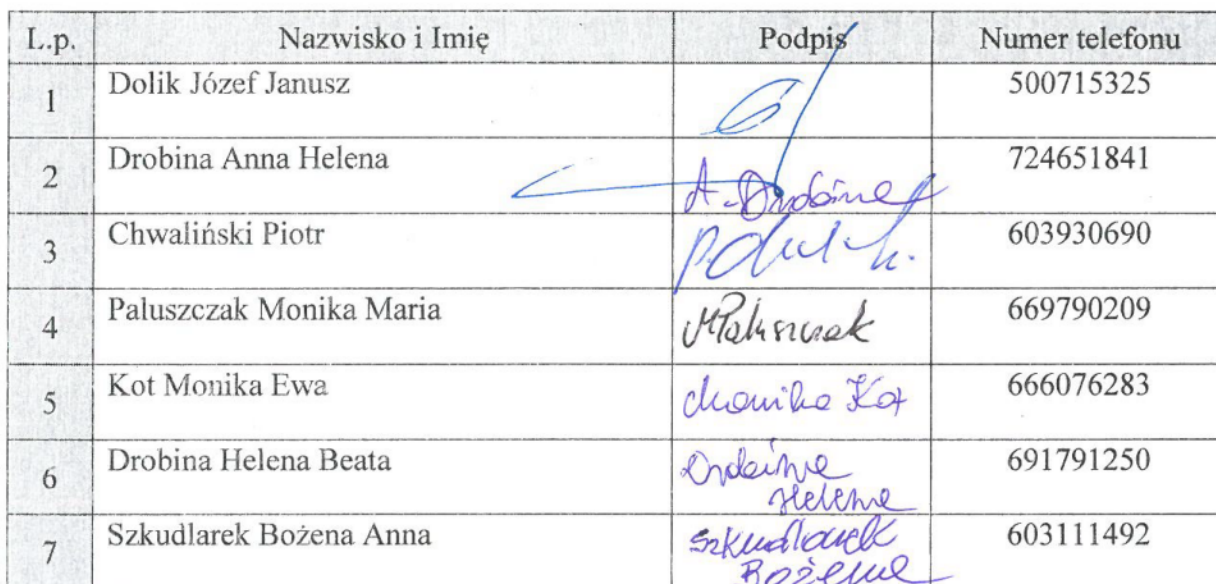 L.p. Nazwisko i Imię Podpis Numer telefonu
1 Dolik Józef Janusz 500715325
2 Drobina Anna Helena A. Drobina 724651841
3 Chwaliński Piotr 603930690
4 Paluszczak Monika Maria MPaluszczak 669790209
5 Kot Monika Ewa Monika Kot 666076283
6 Drobina Helena Beata Drobina 691791250
Helena
7 Szkudlarek Bożena Anna Szkudlarek 603111492
Bożena